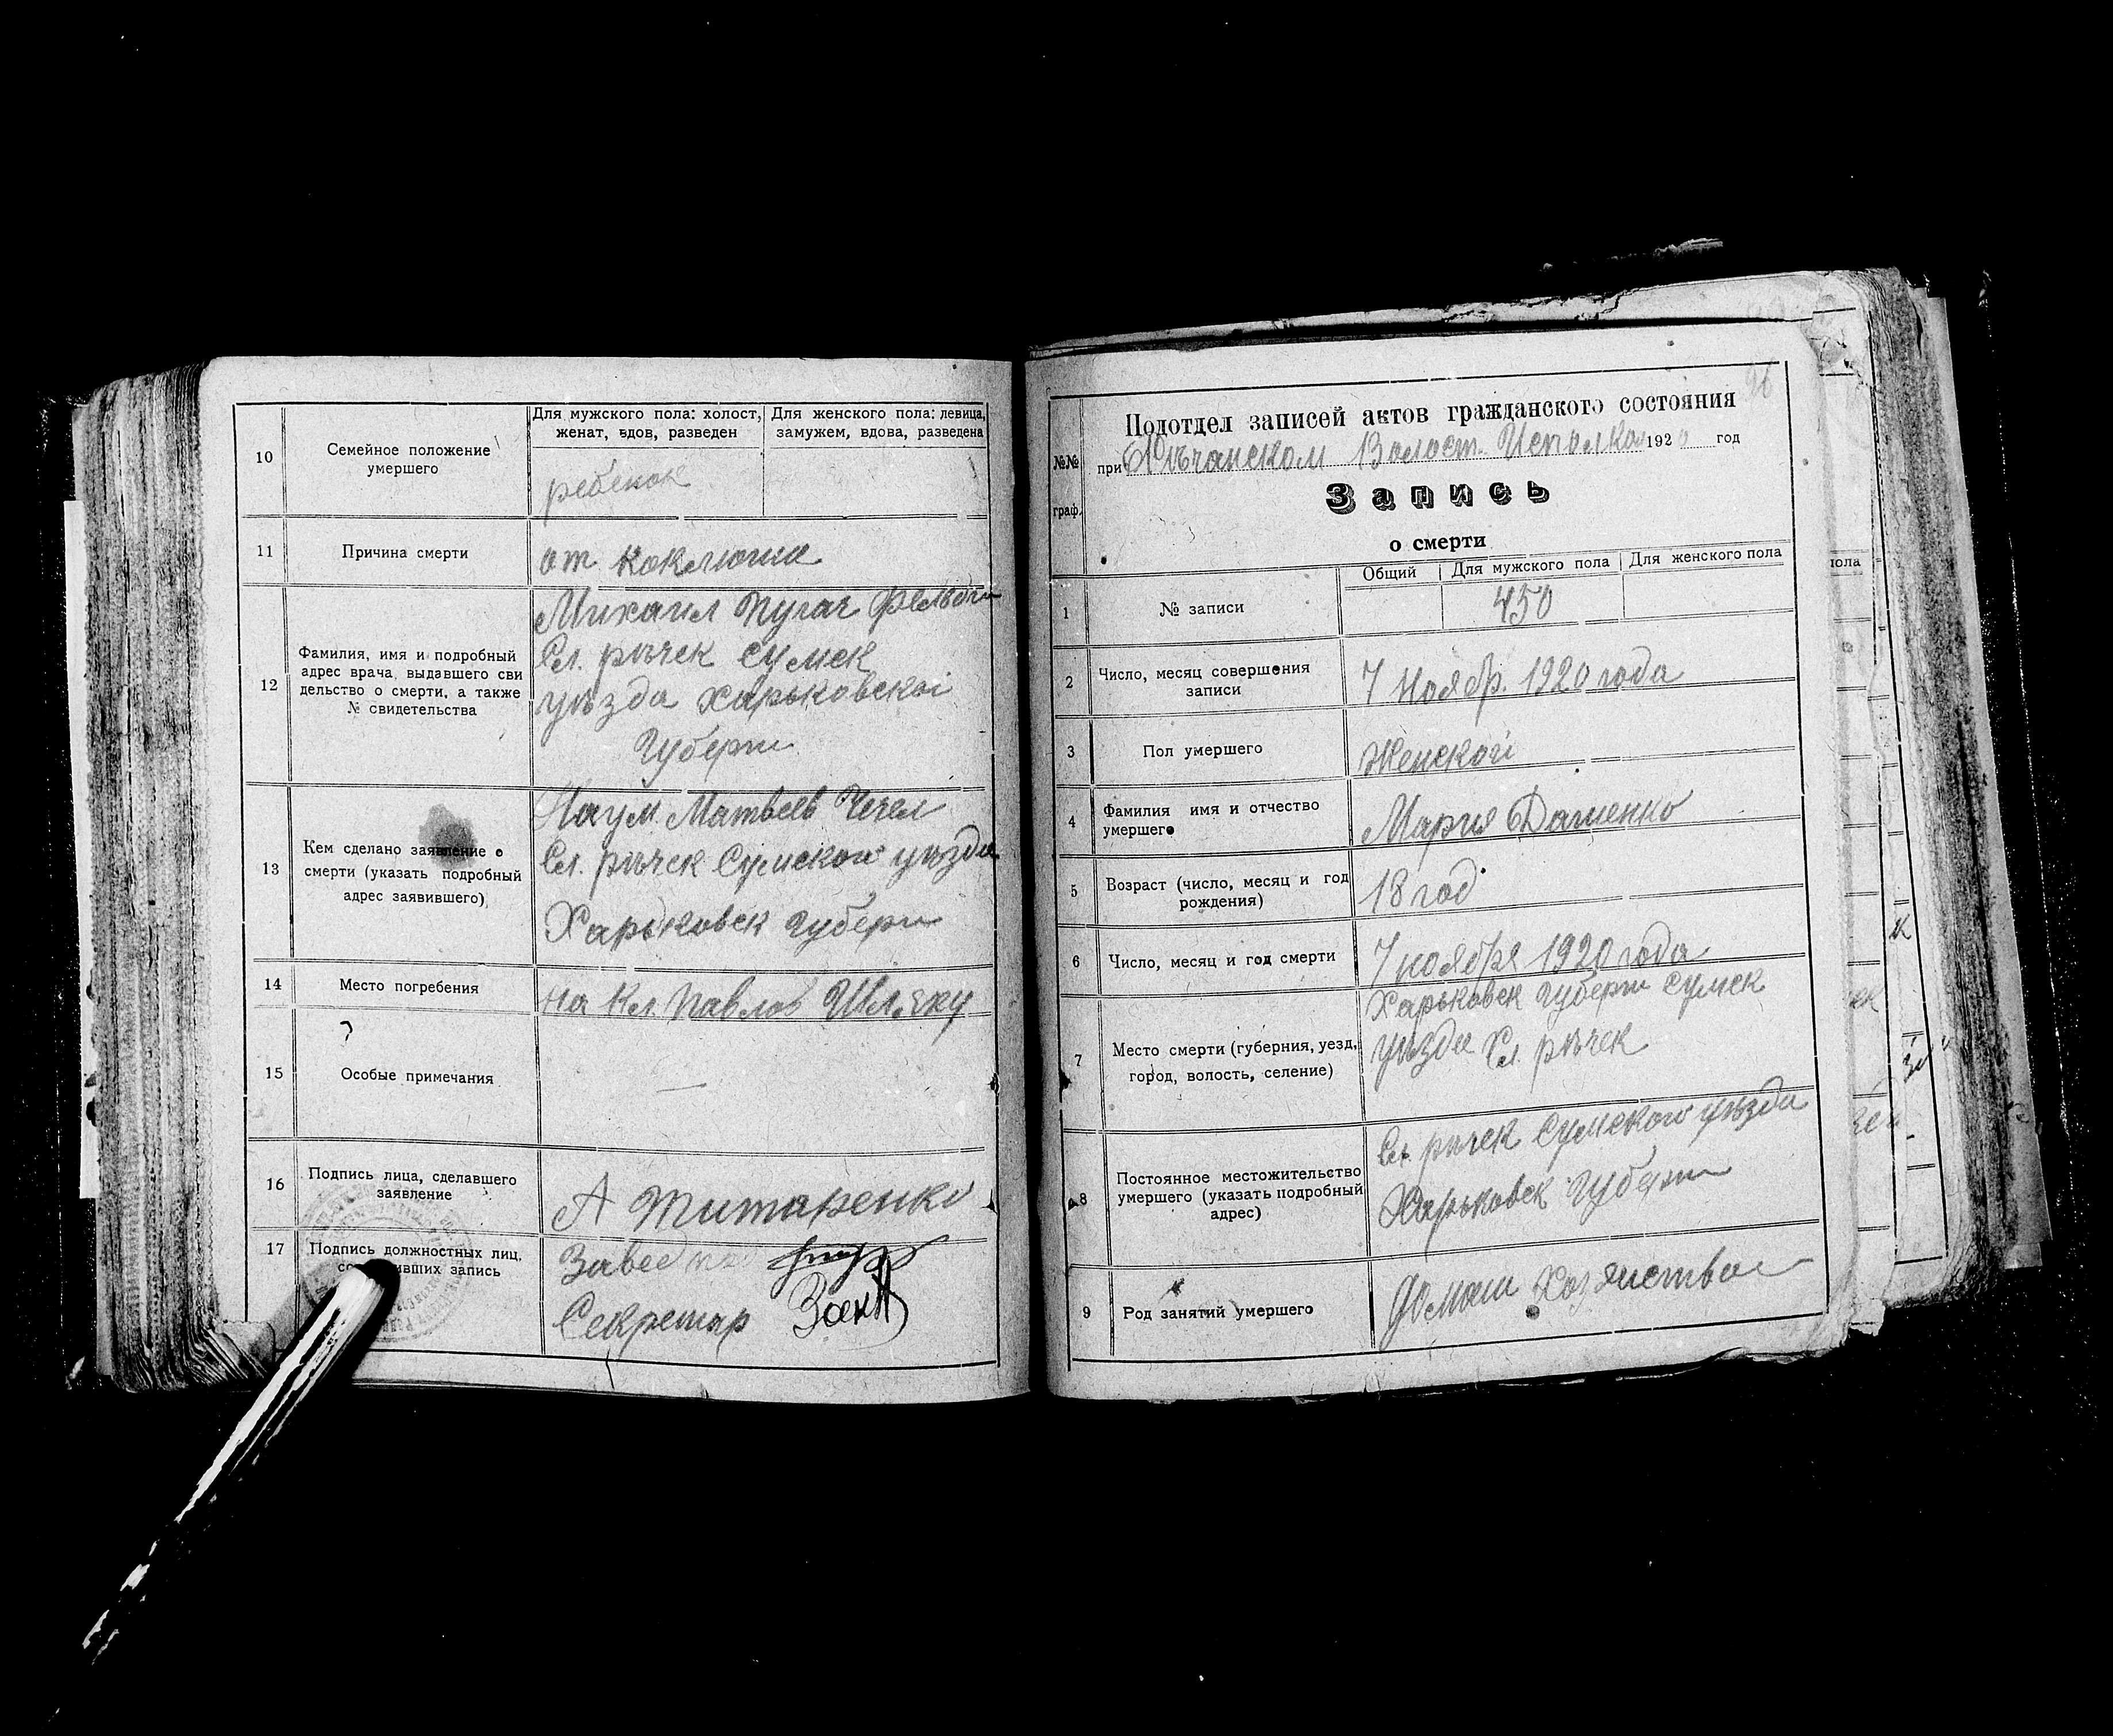 10
Семейное положение
умершего
Для мужского пола: холост,
женат, вдов, разведен
Для женского пола: девица,
замужем, вдова, разведена
ребенок
11
Причина смерти
от коклюша
12
Фамилия, имя и подробный
адрес врача, выдавшего сви
дельство о смерти, а также
№ свидетельства
Михаил Пугач
Сл. рѣчек Сумск
уѣзда Харьковской
Губерни
13
Кем сделано заявление о
смерти (указать подробный
адрес заявившего)
Наум Матвеев Чечел
Сл. рѣчек Сумского уѣзда
Харьковск губерни
14
Место погребения
на Кл. Павлов Шляху
?
15
Особые примечания
—
16
Подпись лица, сделавшего
заявление
А Титаренко
17
Подпись должностных лиц,
вивших запись
Секретар
96
Подотдел записей актов гражданского состояния
№№
граф.
при Рѣчанском Волост. Исполком 1920 год
Запись
о смерти
Общий
Для мужского пола
Для женского пола
1
№ записи
450
2
Число, месяц совершения
записи
7 Ноябр. 1920 года
3
Пол умершего
Женской
4
Фамилия имя и отчество
умершего
Мария Даценко
5
Возраст (число, месяц и год
рождения)
18 год
6
Число, месяц и год смерти
7 ноября 1920 года
7
Место смерти (губерния, уезд,
город, волость, селение)
Харьковск губерни Сумск
уѣзда Сл. рѣчек
8
Постоянное местожительство
умершего (указать подробный
адрес)
Сл. рѣчек Сумского уѣзда
Харьковск Губерни
9
Род занятий умершего
Домаш Хозяиство
пола